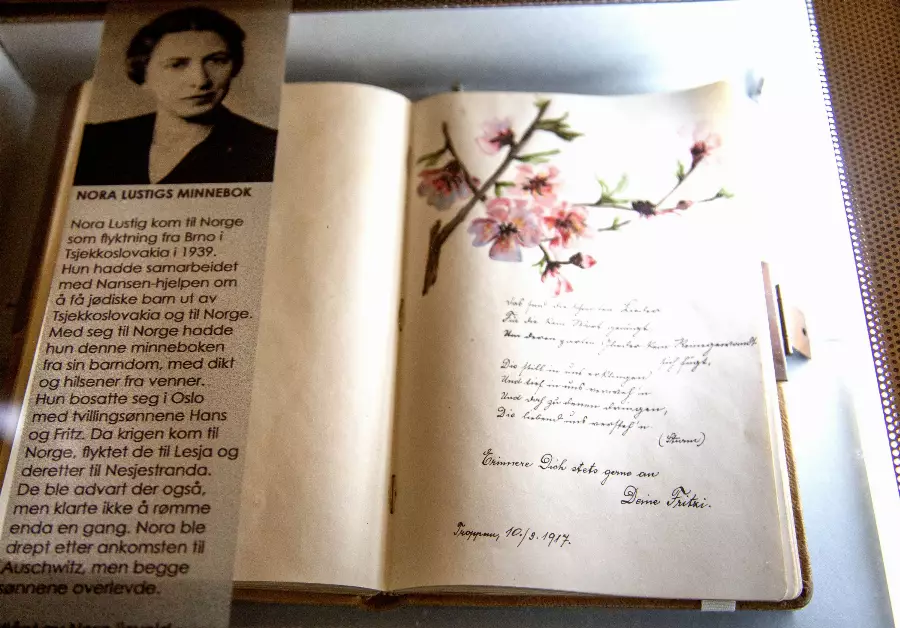 NORA LUSTIGS MINNEBOK
Nora Lustig kom til Norge
som flyktning fra Brno i
Tsjekkoslovakia i 1939.
Hun hadde samarbeidet
med Nansen-hjelpen om
å få jødiske barn ut av
Tsjekkoslovakia og til Norge.
Med seg til Norge hadde
hun denne minneboken
fra sin barndom, med dikt
og hilsener fra venner.
Hun bosatte seg i Oslo
med tvillingsønnene Hans
og Fritz. Da krigen kom til
Norge, flyktet de til Lesja og
deretter til Nesjestranda.
De ble advart der også,
men klarte ikke å rømme
enda en gang. Nora ble
drept etter ankomsten til
Auschwitz, men begge
sønnene overlevde.
Das sind die Lieder
Für die kein Wort genügt
Um deren zarten kein
sich fügt,
Die still in uns erklingen
Und tief in uns verweh'n
Und doch zu denen dringen,
Die liebend uns versteh'n
(Sturm)
Erinnere Dich stets gerne an
Deine Fritzi.
Troppau, 10./3. 1917.